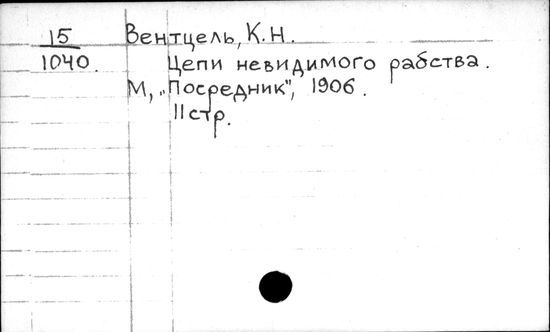 15 Вентцель, К.Н.
1040. Цепи невидимого рабства.
М, „Посредник", 1906.
11стр.